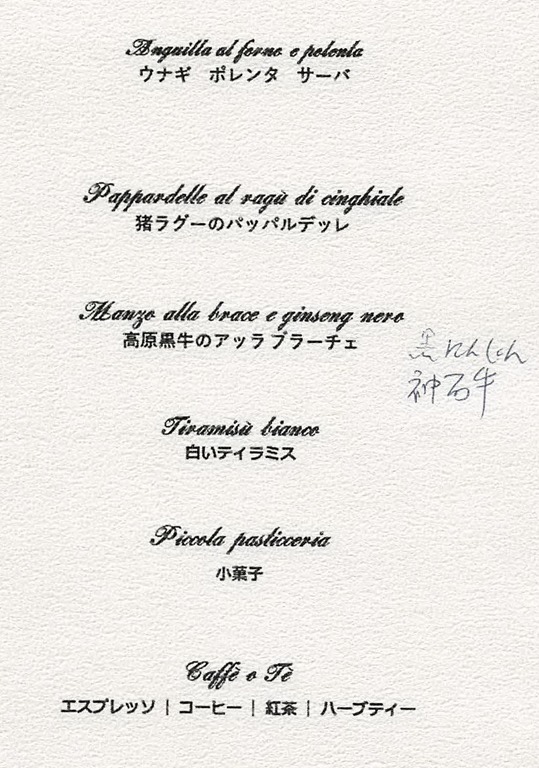 Anguilla al forno e polenta
ウナギ ポレンタ サーバ
Pappardelle al ragù di cinghiale
猪ラグーのパッパルデッレ
Manzo alla brace e ginseng nero
高原黒牛のアッラブラーチェ
黒にんじん
神石牛
Tiramisù bianco
白いティラミス
Piccola pasticceria
小菓子
Caffè o Tè
エスプレッソ | コーヒー | 紅茶 | ハーブティー